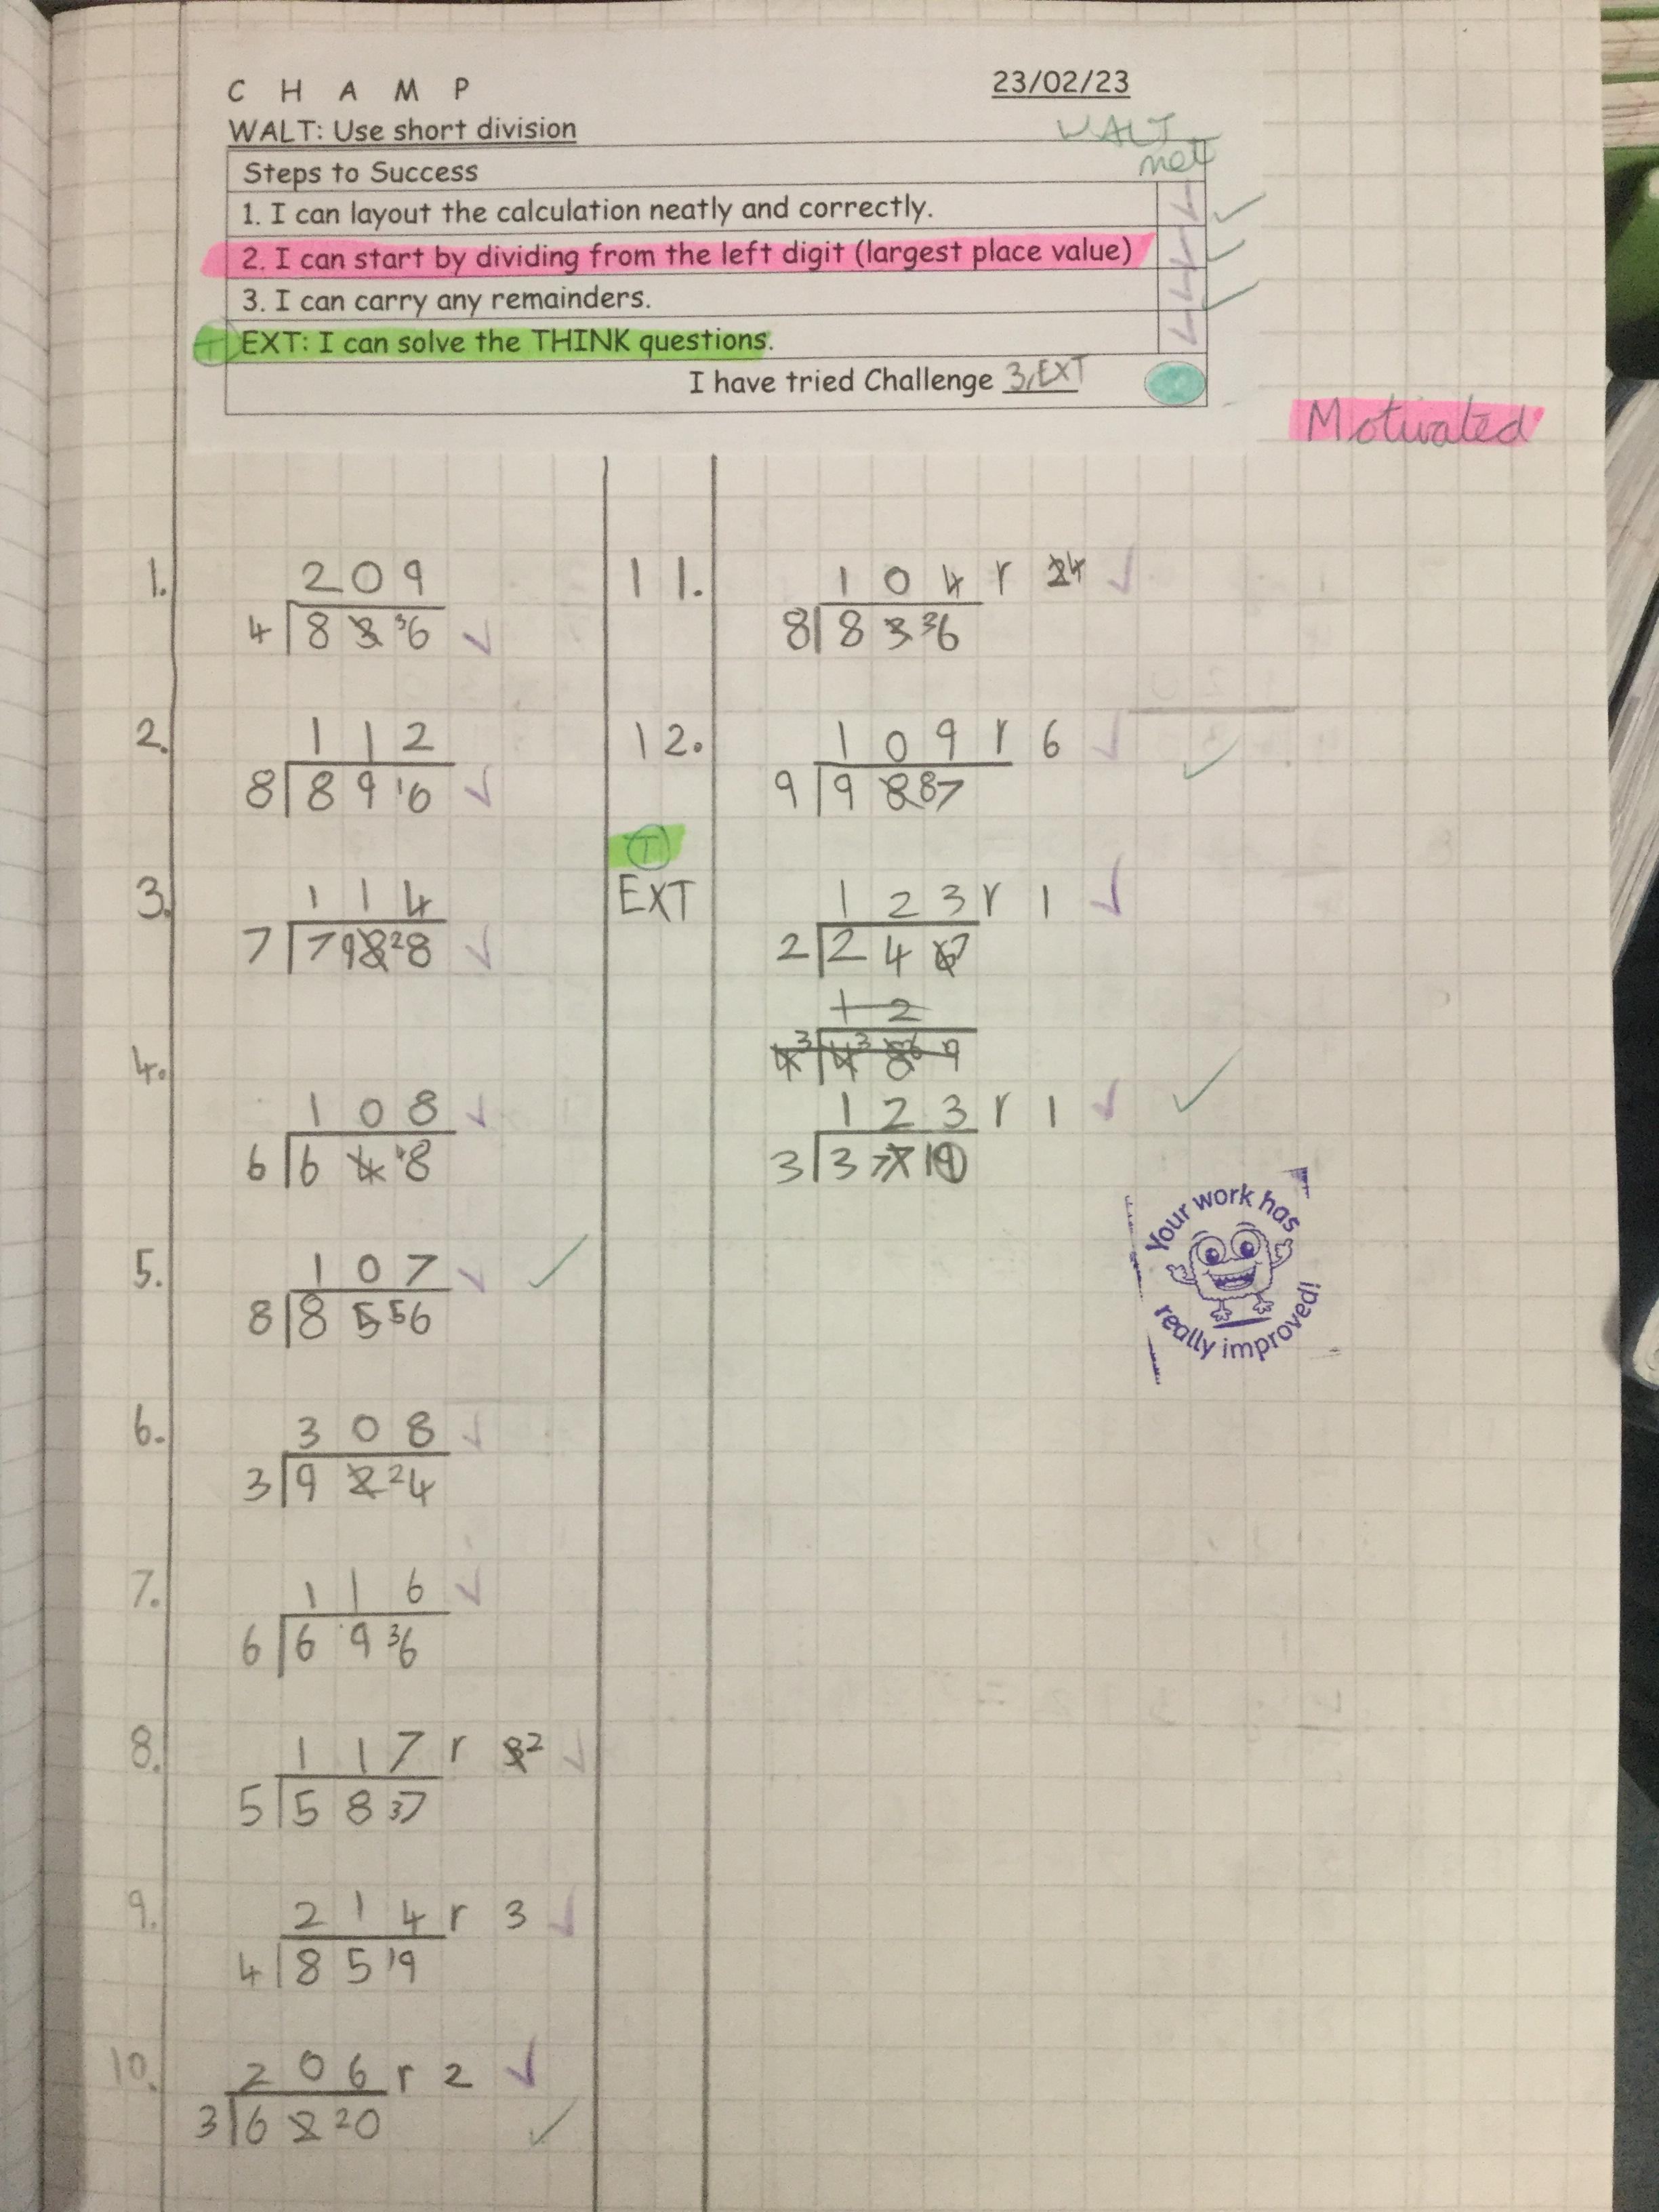 C H A M P
23/02/23
WALT: Use short division
WALT
met
Steps to Success
1. I can layout the calculation neatly and correctly.
2. I can start by dividing from the left digit (largest place value)
3. I can carry any remainders.
T EXT: I can solve the THINK questions.
I have tried Challenge 3, EXT
Motivated
1.
209
4 8 3 36
2.
1 1 2
8 8 9 16
3.
1 1 4
7 7 9 28
4.
1 0 8
6 6 4 48
5.
1 0 7
8 8 5 56
6.
3 0 8
3 9 2 24
7.
1 1 6
6 6 9 36
8.
1 1 7 r 2
5 5 8 37
9.
2 1 4 r 3
4 8 5 19
10.
2 0 6 r 2
3 6 2 20
11.
1 0 4 r 4
8 8 3 36
12.
1 0 9 r 6
9 9 8 87
T
EXT
1 2 3 r 1
2 2 4 7
1 2
1 2 3 r 1
3 3 7 10
Your work has
really improved!